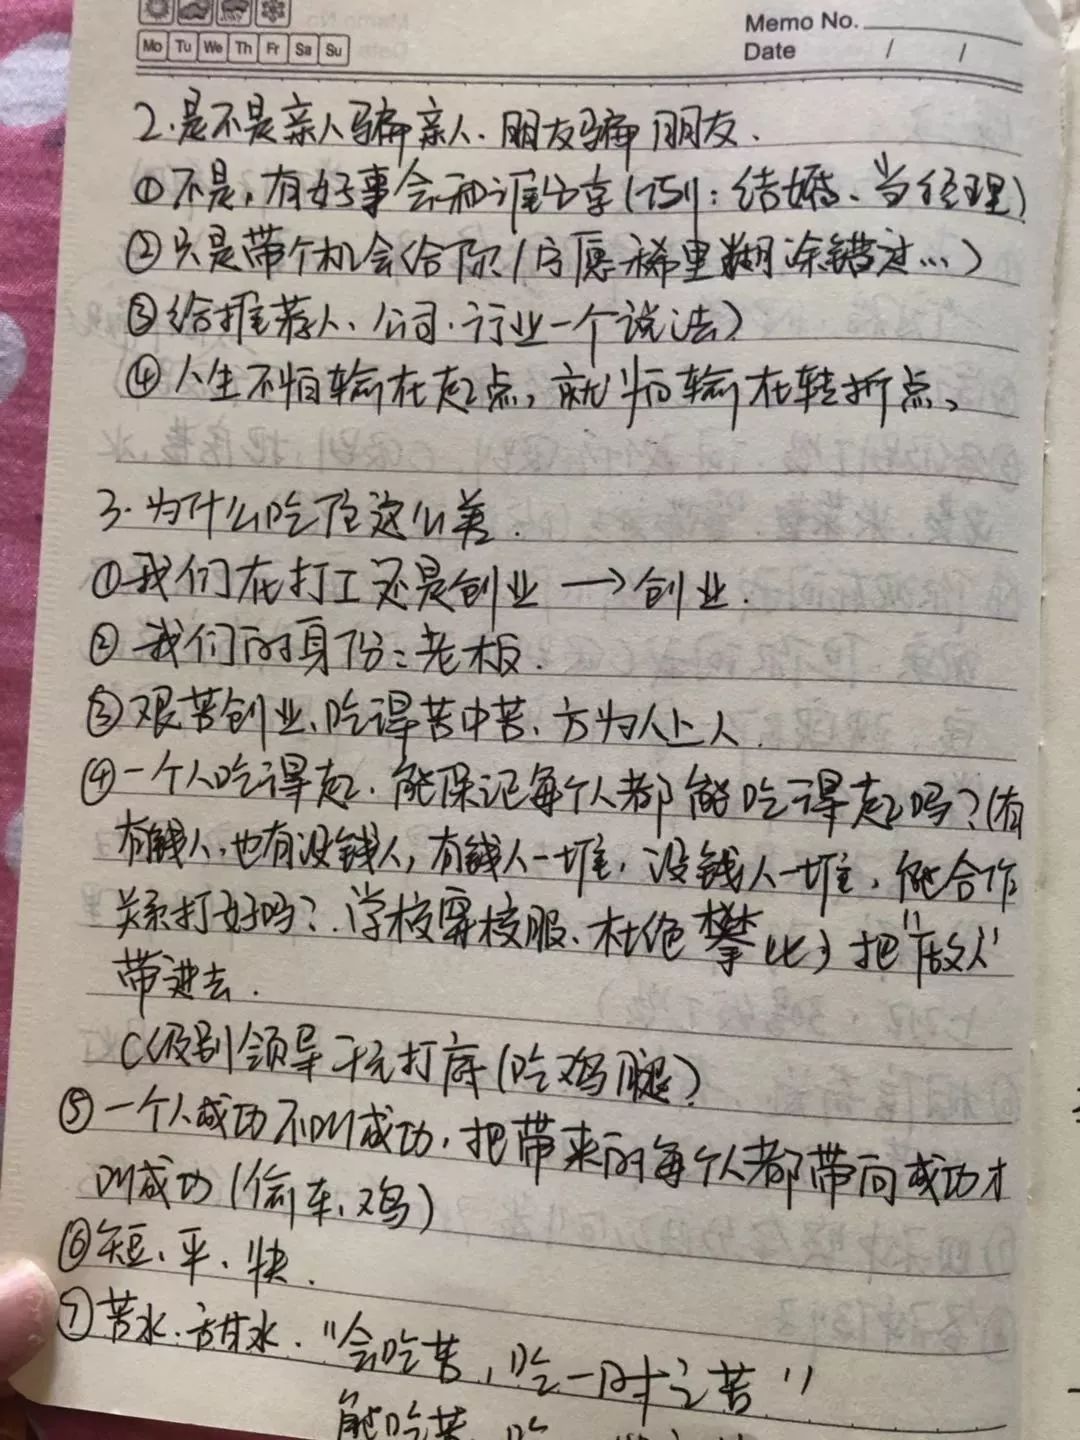 Memo No.
Mo Tu We Th Fr Sa Su
Date / /
2.是不是亲人骗亲人.朋友骗朋友.
①不是,有好事会和谁分享(例:结婚、当经理)
②只是带个机会给你(宁愿稀里糊涂错过…)
③给推荐人、公司.行业一个说法)
④人生不怕输在起点,就怕输在转折点、
3.为什么吃住这么差.
①我们在打工还是创业→创业.
②我们的身份:老板.
③艰苦创业、吃得苦中苦、方为人上人.
④一个人吃得起.能保记每个人都能吃得起吗?(有
有钱人,也有没钱人,有钱人一堆,没钱人一堆,能合作
关系打好吗?.学校穿校服、杜绝攀比)把"敌人"
带进去.
C级别领导千元打底(吃鸡腿)
⑤一个人成功不叫成功,把带来的每个人都带向成功才
叫成功(偷车、鸡)
⑥短、平、快.
⑦苦水.甜水."会吃苦,吃一时之苦"
能吃苦,吃